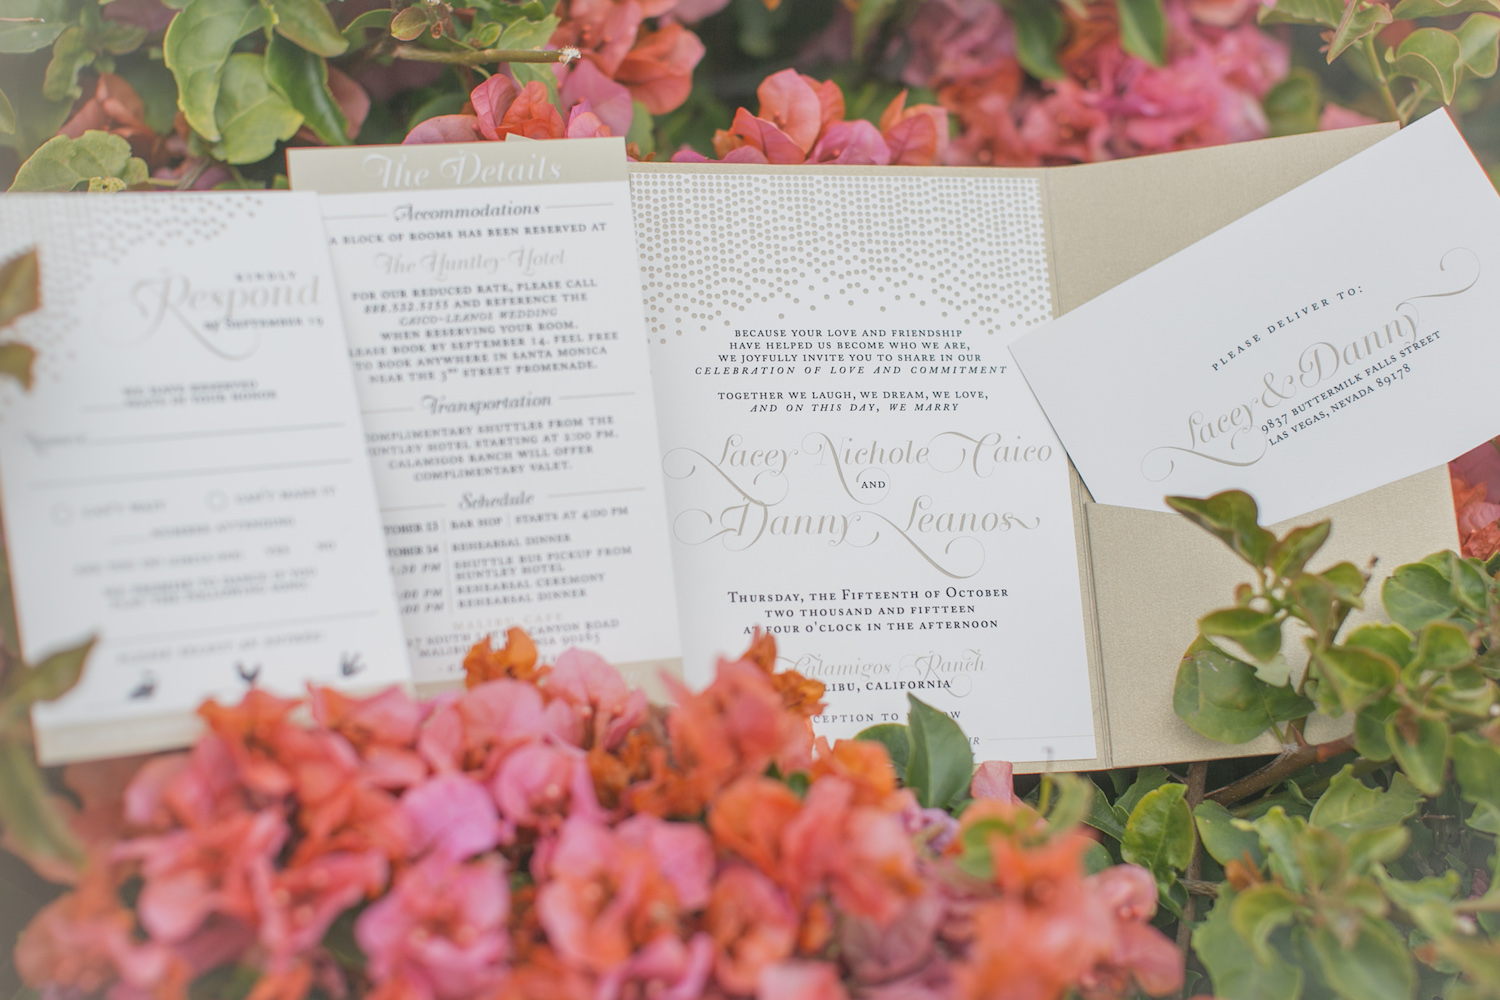 KINDLY
Respond
BY SEPTEMBER 15
WE HAVE RESERVED
SEATS IN YOUR HONOR
CAN'T WAIT
CAN'T MAKE IT
NUMBER ATTENDING
The Details
Accommodations
A BLOCK OF ROOMS HAS BEEN RESERVED AT
The Huntley Hotel
FOR OUR REDUCED RATE, PLEASE CALL
888.532.5155 AND REFERENCE THE
CAICO-LEANOS WEDDING
WHEN RESERVING YOUR ROOM.
PLEASE BOOK BY SEPTEMBER 14. FEEL FREE
TO BOOK ANYWHERE IN SANTA MONICA
NEAR THE 3RD STREET PROMENADE.
Transportation
COMPLIMENTARY SHUTTLES FROM THE
HUNTLEY HOTEL STARTING AT 2:00 PM.
CALAMIGOS RANCH WILL OFFER
COMPLIMENTARY VALET.
Schedule
TOBER 13 BAR HOP STARTS AT 4:00 PM
TOBER 14 REHEARSAL DINNER
:30 PM SHUTTLE BUS PICKUP FROM
HUNTLEY HOTEL
:00 PM REHEARSAL CEREMONY
:00 PM REHEARSAL DINNER
MALIBU CAFE
CANYON ROAD
90265
BECAUSE YOUR LOVE AND FRIENDSHIP
HAVE HELPED US BECOME WHO WE ARE,
WE JOYFULLY INVITE YOU TO SHARE IN OUR
CELEBRATION OF LOVE AND COMMITMENT
TOGETHER WE LAUGH, WE DREAM, WE LOVE,
AND ON THIS DAY, WE MARRY
Lacey Nichole Caico
AND
Danny Leanos
THURSDAY, THE FIFTEENTH OF OCTOBER
TWO THOUSAND AND FIFTEEN
AT FOUR O'CLOCK IN THE AFTERNOON
Calamigos Ranch
LIBU, CALIFORNIA
CEPTION TO
PLEASE DELIVER TO:
Lacey & Danny
9837 BUTTERMILK FALLS STREET
LAS VEGAS, NEVADA 89178